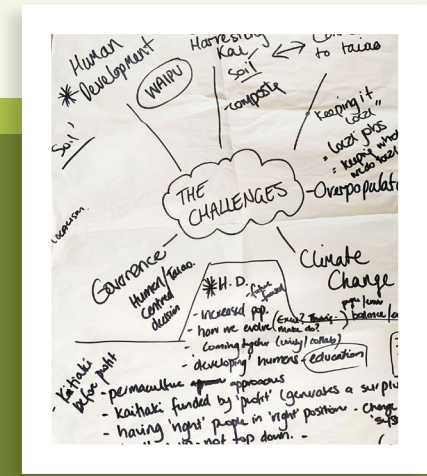 Human
* Development
WAIPU
Harvesting
Kai
soil
compost
to taiao
"Soil"
"Keeping it
local"
local jobs
= keeping what
we do local
THE
CHALLENGES
- Overpopulat
Localism
Governence
Human/Taiao.
centred
decision
Climate
Change
balance/e
* H.D.
- future
focused
- increased pop.
- how we evolve (
make do?
- coming together (unity/collab)
'developing' humans - education
Kaitiaki
before profit
- permaculture approaches
- Kaitiaki funded by 'profit' (generates a surpl
- having 'right' people in 'right' position. - change
not top down. -